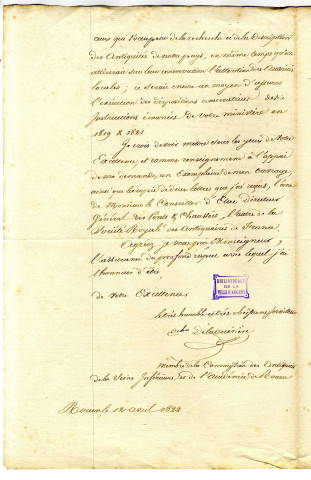 ceux qui s'occupent de la recherche et de la description
des Antiquités de notre pays, en même temps qu'elle
attirerait sur leur conservation l'attention des autorités
locales ; ce serait encore un moyen d'assurer
l'exécution des dispositions conservatrices des
Instructions émanées de votre ministère en
1819 & 1821
Je crois devoir mettre sous les yeux de Votre
Excellence, et comme renseignement à l'appui
de ma demande, un Exemplaire de mon ouvrage,
ainsi que la copie de deux lettres que j'ai reçues, l'une
de Monsieur le Conseiller d'Etat Directeur
Général des Ponts & Chaussées, l'autre de la
Société Royale des Antiquaires de France.
Agréez, je vous prie Monseigneur,
l'assurance du profond respect avec lequel j'ai
l'honneur d'être,
de Votre Excellence,
BIBLIOTHEQUE
DE LA
VILLE DE ROUEN
Le très humble et très obéissant serviteur
Delaquérière
Membre de la Commission des Antiquités
de la Seine Inférieure, et de l'Académie de Rouen
Rouen le 12 avril 1822